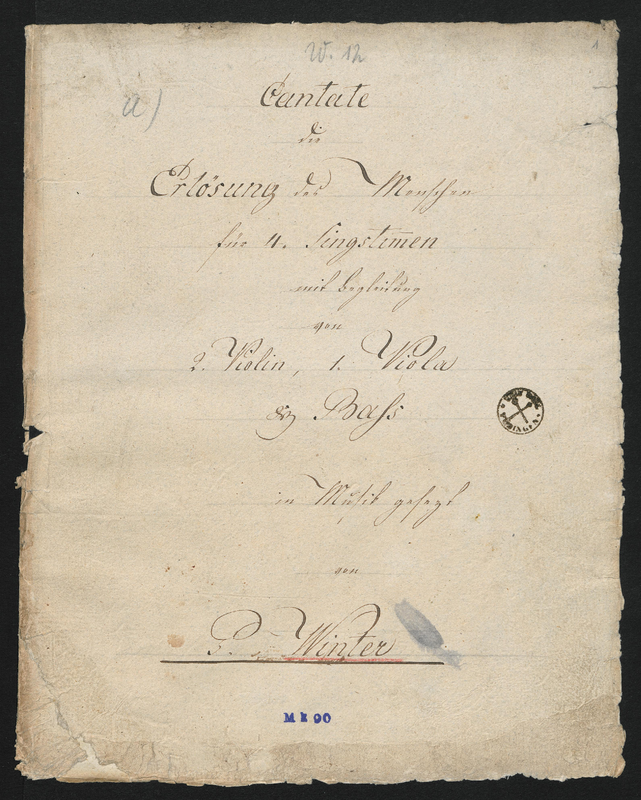 W. 12
1
a)
Cantate
die
Erlösung des Menschen
für 4. Singstim̄en
mit Begleitung
von
2. Violin, 1. Viola
& Bass
in Musik gesezt
von
P. Winter
Mk 90